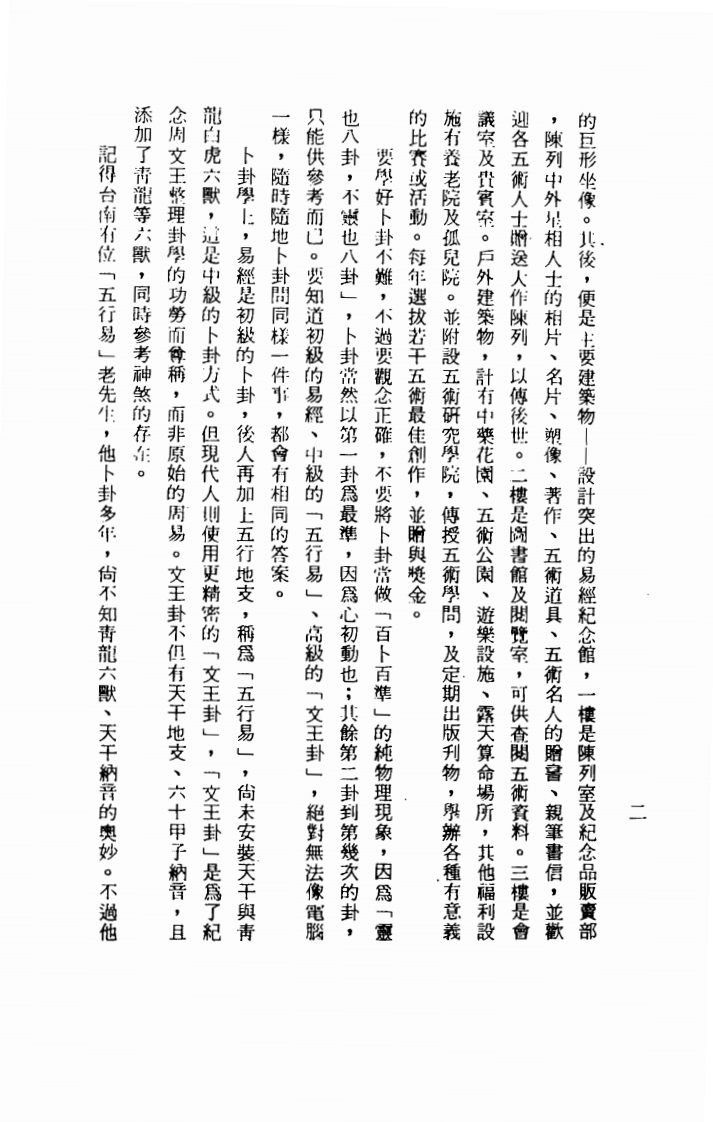 二
的巨形坐像。其後，便是主要建築物——設計突出的易經紀念館，一樓是陳列室及紀念品販賣部
，陳列中外星相人士的相片、名片、塑像、著作、五術道具、五術名人的贈書、親筆書信，並歡
迎各五術人士贈送大作陳列，以傳後世。二樓是圖書館及閱覽室，可供查閱五術資料。三樓是會
議室及貴賓室。戶外建築物，計有中藥花園、五術公園、遊樂設施、露天算命場所，其他福利設
施有養老院及孤兒院。並附設五術研究學院，傳授五術學問，及定期出版刋物，學辦各種有意義
的比賽或活動。每年選拔若干五術最佳創作，並贈與獎金。
要學好卜卦不難，不過要觀念正確，不要將卜卦當做「百卜百準」的純物理現象，因爲「靈
也八卦，不靈也八卦」，卜卦當然以第一卦爲最準，因爲心初動也；其餘第二卦到第幾次的卦，
只能供參考而已。要知道初級的易經、中級的「五行易」、高級的「文王卦」，絕對無法像電腦
一樣，隨時隨地卜卦問同樣一件事，都會有相同的答案。
卜卦學上，易經是初級的卜卦，後人再加上五行地支，稱爲「五行易」，尙未安裝天干與靑
龍白虎六獸，這是中級的卜卦方式。但現代人則使用更精密的「文王卦」，「文王卦」是爲了紀
念周文王整理卦學的功勞而尊稱，而非原始的周易。文王卦不但有天干地支、六十甲子納音，且
添加了靑龍等六獸，同時參考神煞的存在。
記得台南有位「五行易」老先生，他卜卦多年，尙不知靑龍六獸、天干納音的奧妙。不過他